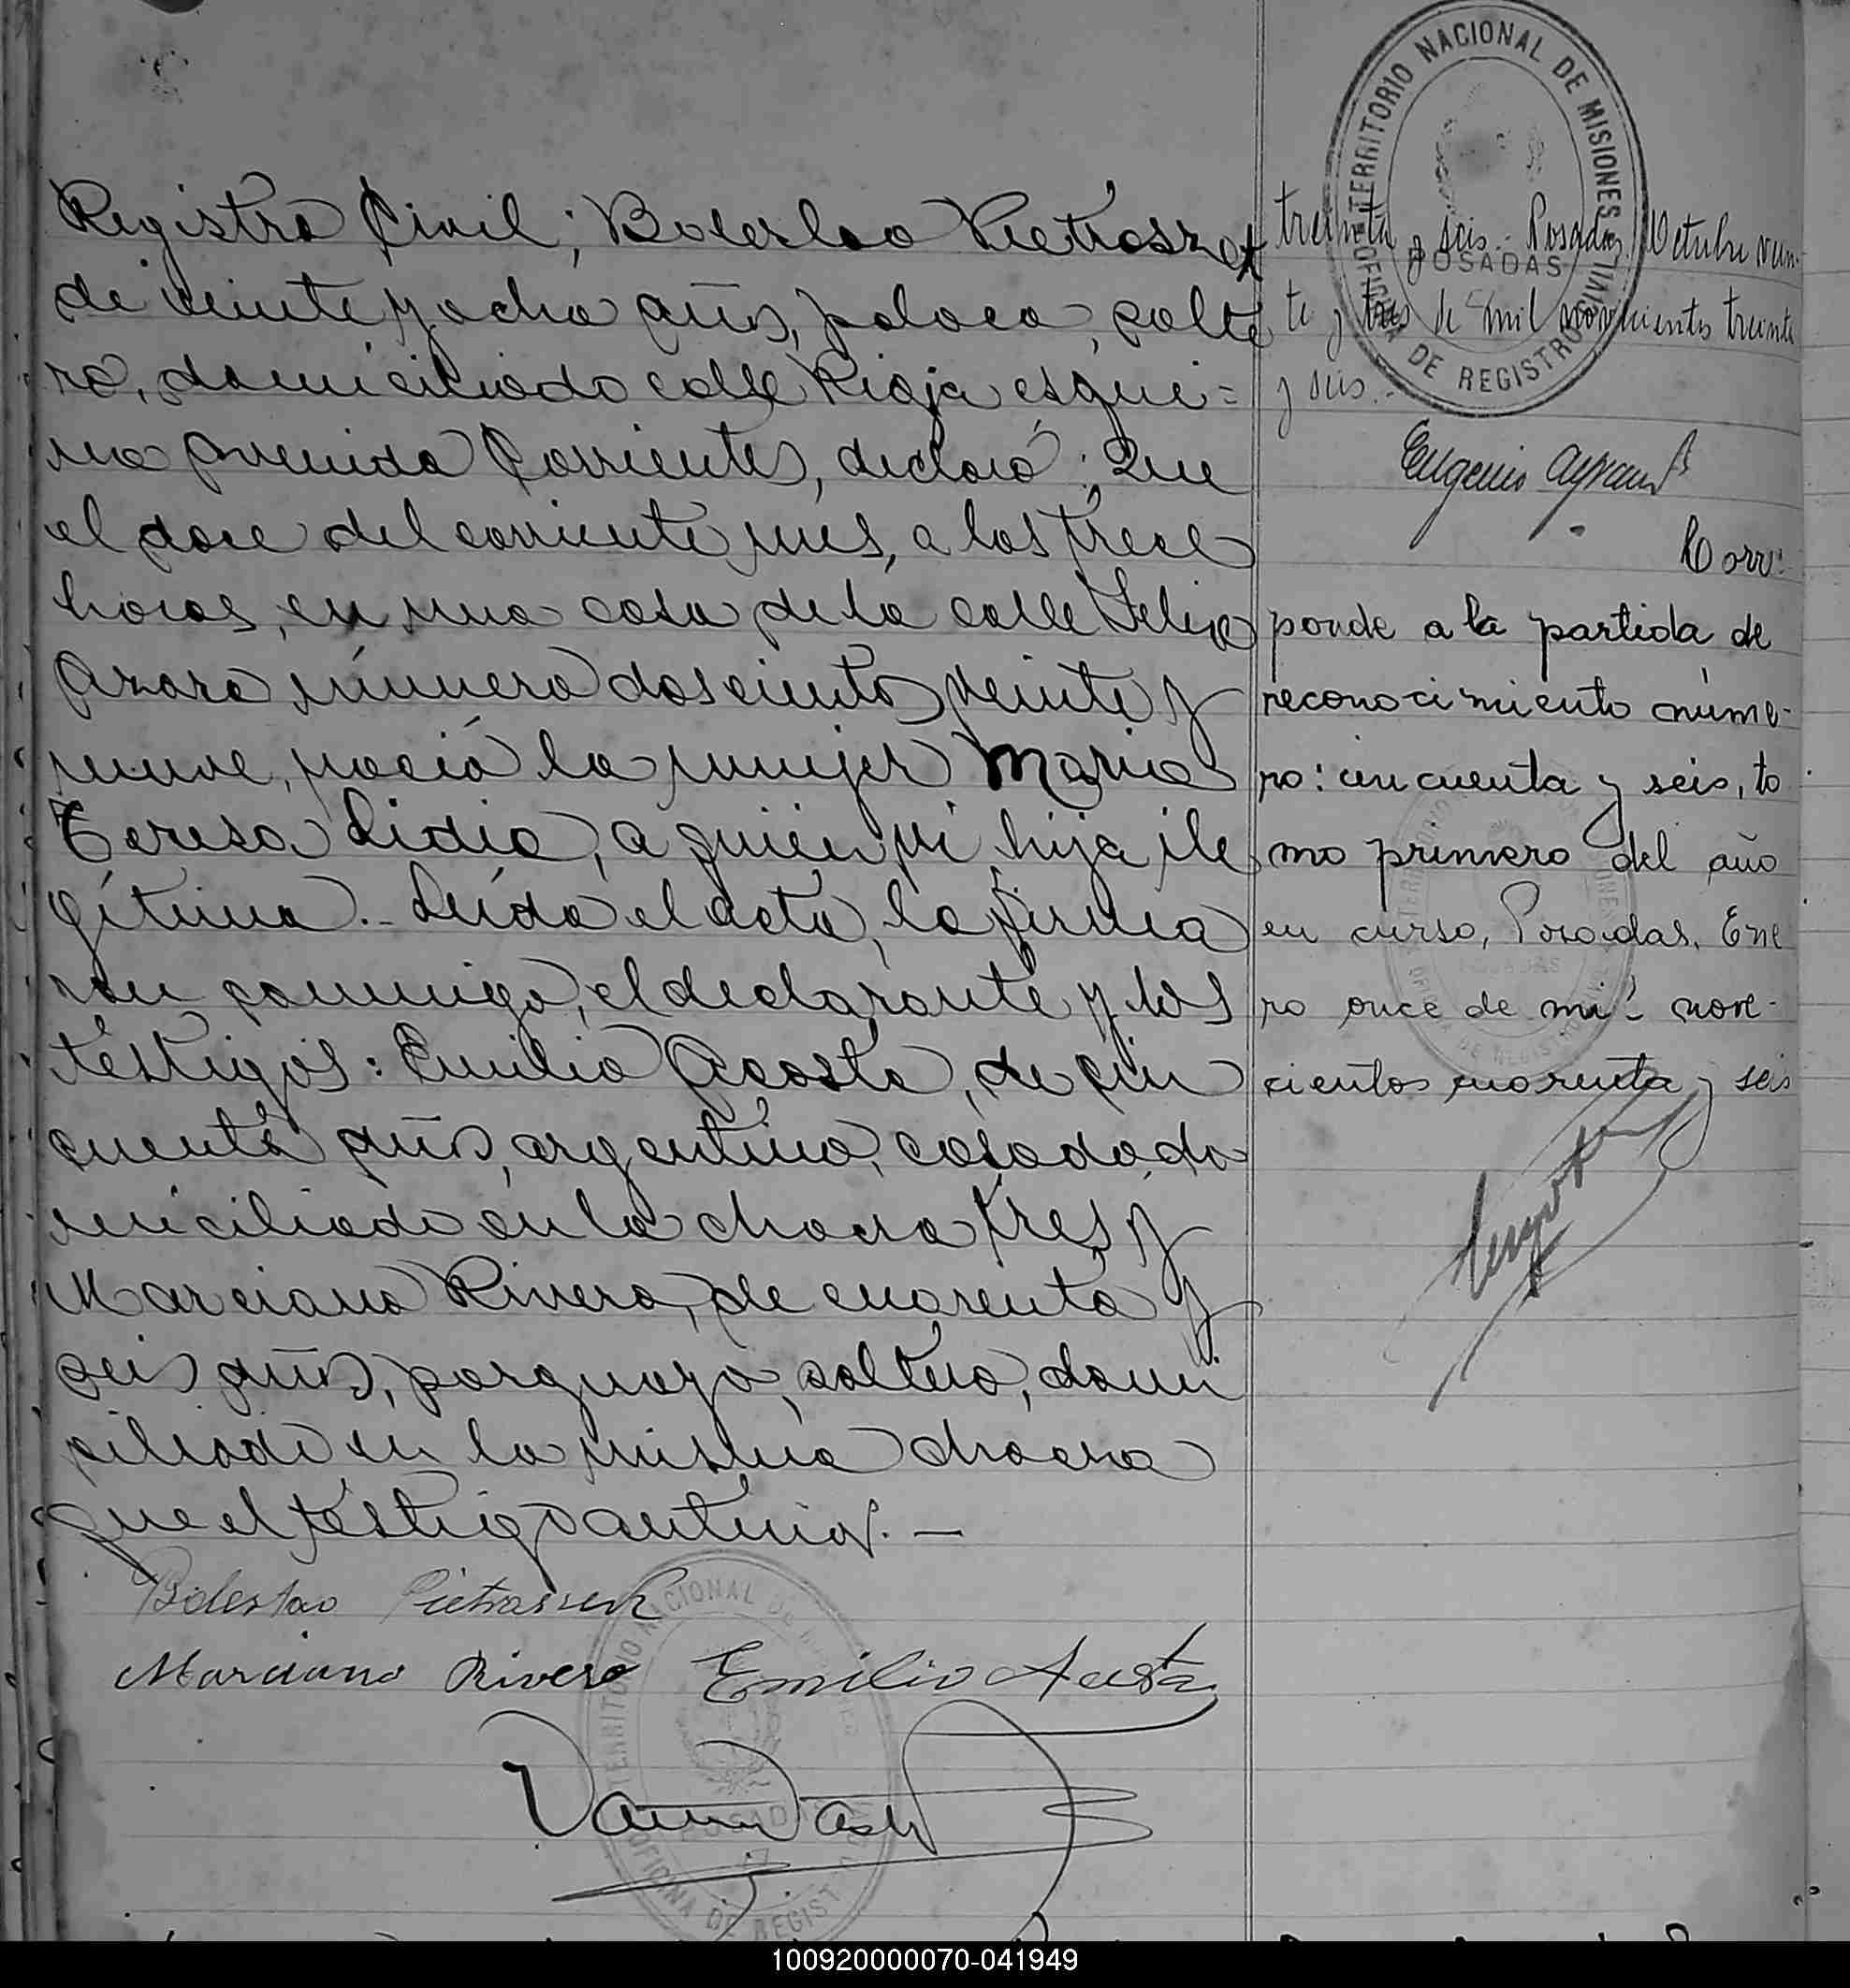 Registro Civil; Boleslao Pietroszek
de veinte y ocho años, polaco, solte
ro, domiciliado calle Rioja esqui=
na Avenida Corrientes, declaró: Que
el doce del corriente mes, a las trece
horas, en una casa de la calle Felix
Azara número doscientos veinte y
nueve, nació la mujer Maria
Teresa Lidia, a quien vi hija ile
gítima.- Leída el acta, la firma
ron conmigo, el declarante y los
testigos: Emilio Acosta, de cin
cuenta años, argentino, casado, do
miciliado en la chacra tres y
Marciano Rivero, de cuarenta y
seis años, paraguayo, soltero, domi
ciliado en la misma chacra
que el testigo anterior. —
Boleslao Pietraszek
Marciano Rivero Emilio Acosta
TERRITORIO NACIONAL DE MISIONES
POSADAS
OFICINA DE REGISTRO CIVIL
treinta y seis.- Posadas, Octubre vein-
te y tres de mil novecientos treinta
y seis.-
TERRITORIO NACIONAL DE MISIONES
POSADAS
OFICINA DE REGISTRO CIVIL
Eugenio
Corres
ponde a la partida de
reconocimiento núme-
ro: cincuenta y seis, to
mo primero del año
en curso, Posadas, Ene
ro once de mil nove-
cientos cuarenta y seis
100920000070-041949